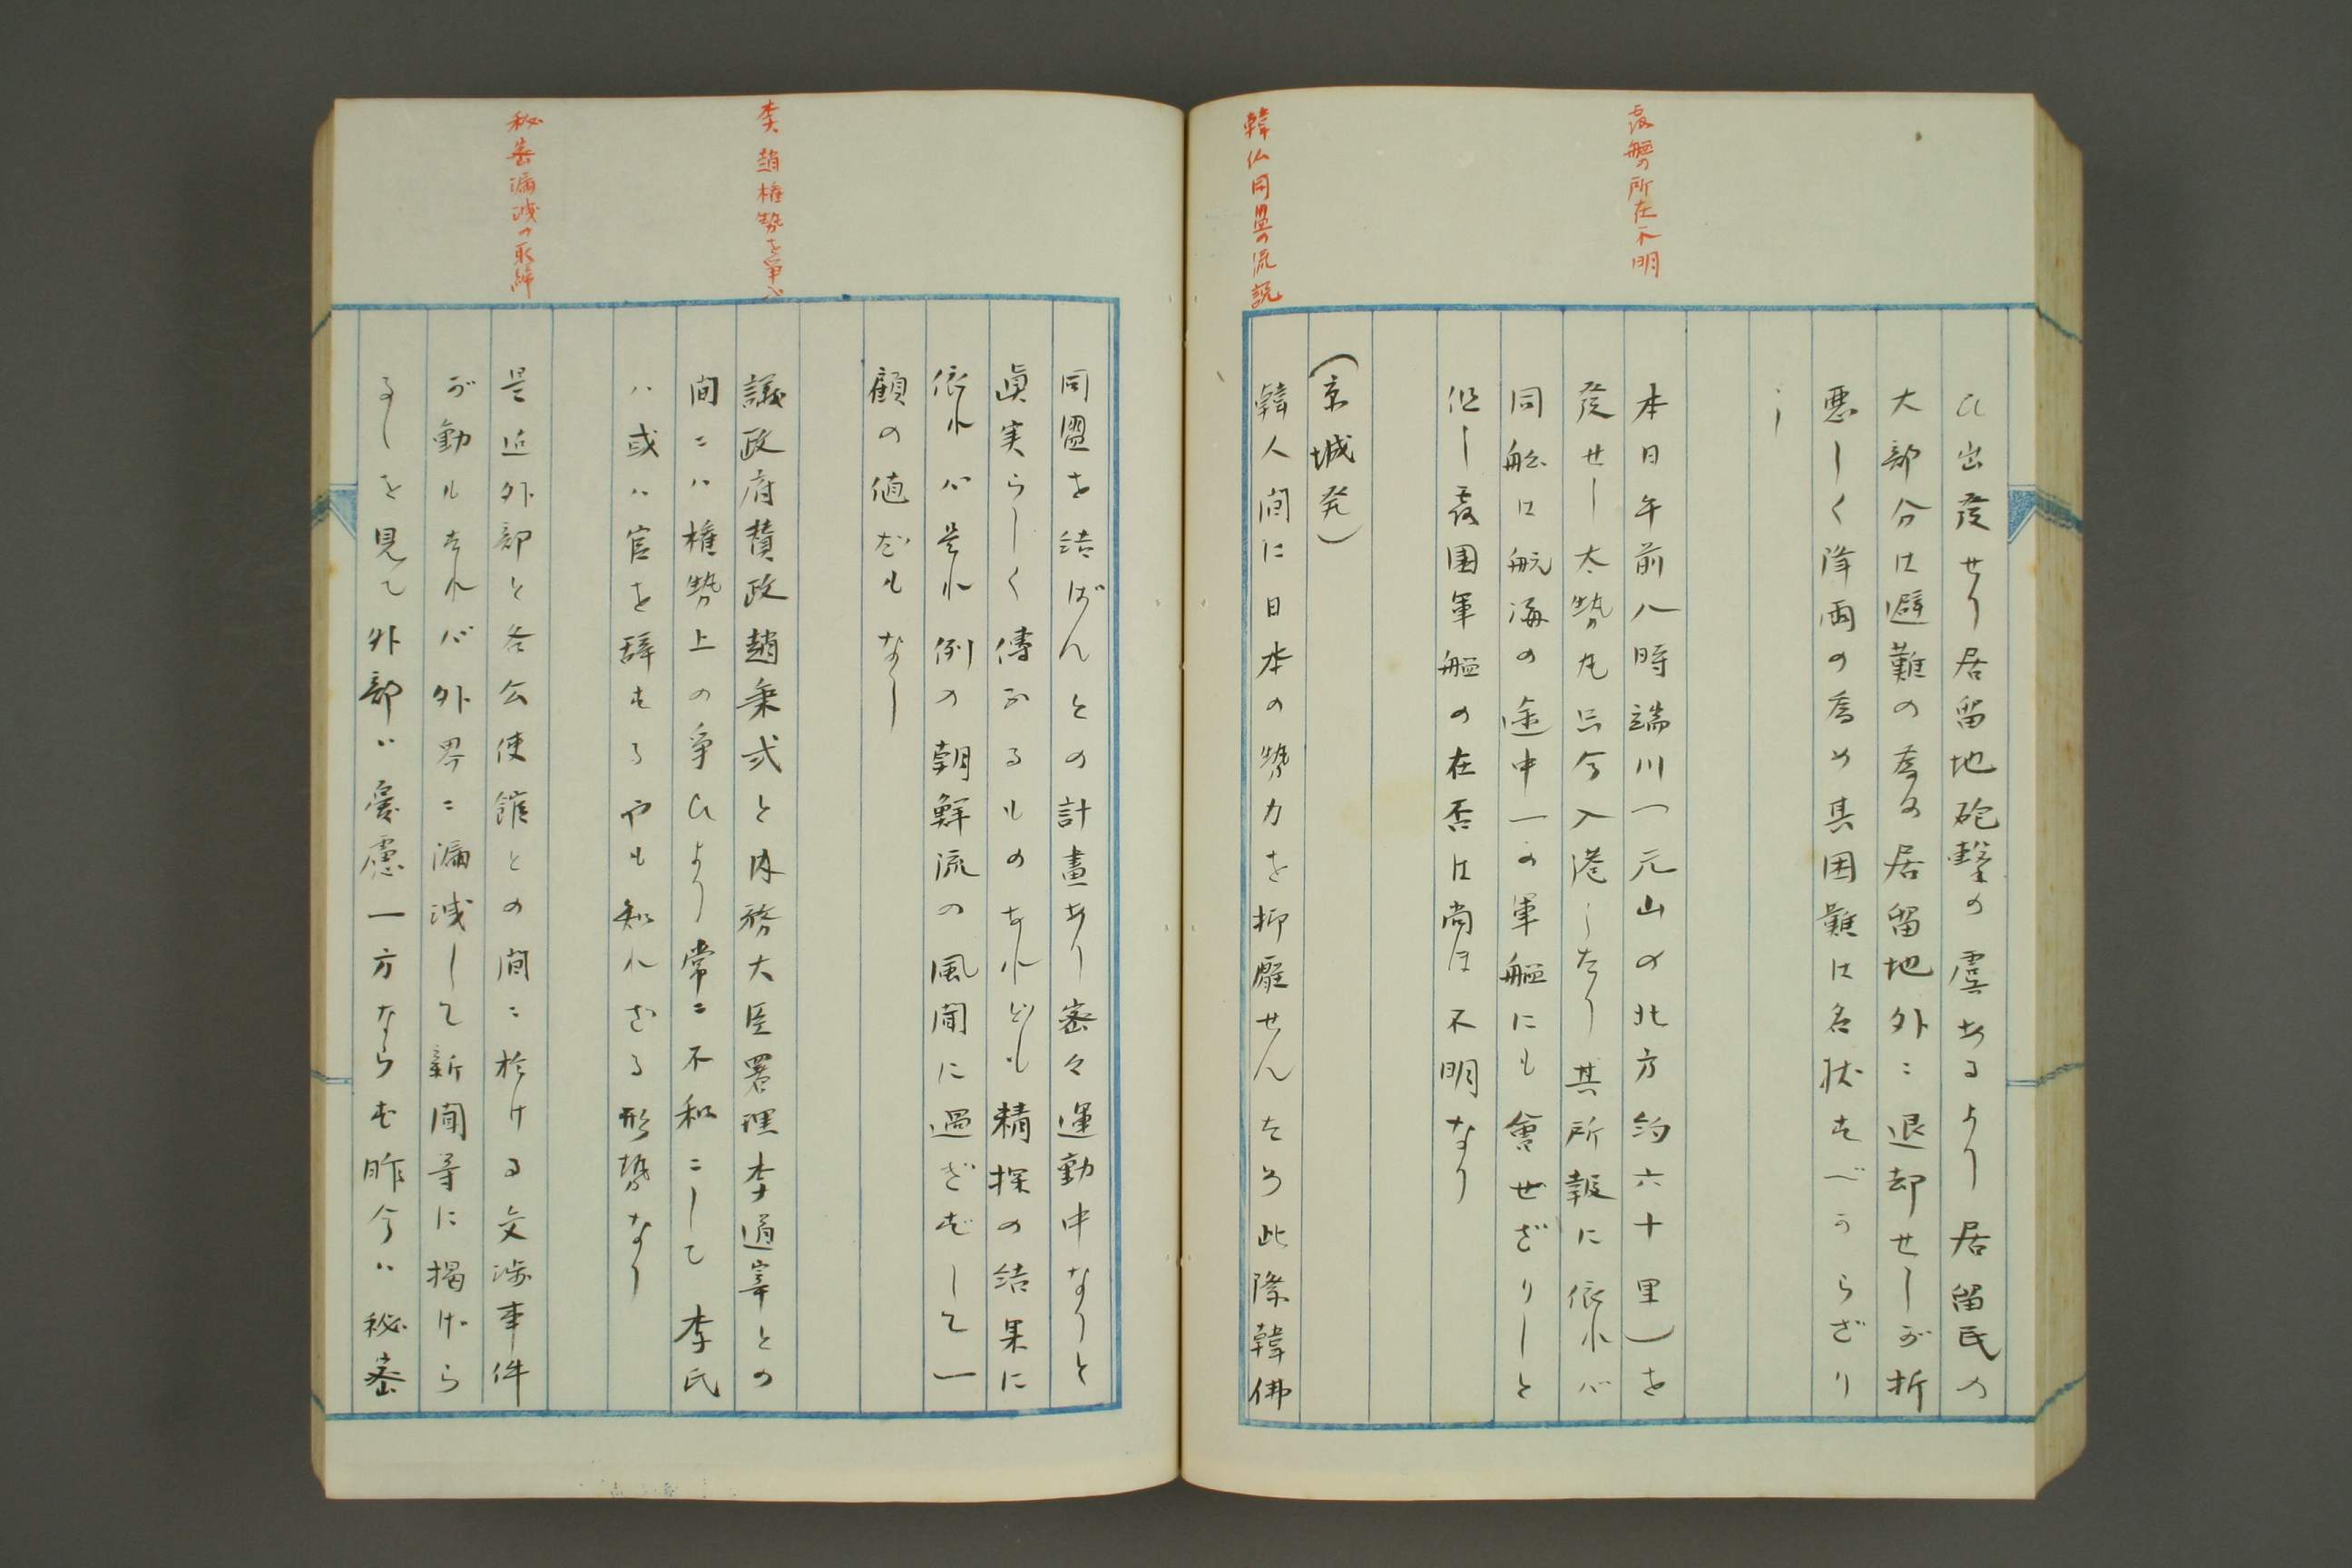 ひ出發せり居留地砲撃の虞あるより居留民の
大部分は避難の爲め居留地外ニ退却せしが折
悪しく降雨の為め其困難は名状すべからざり
し
露艦の所在不明
本日午前八時端川(元山の北方約六十里)を
發せし太勢丸只今入港したり其所報に依れバ
同船は航海の途中一の軍艦にも會せざりしと
但し露国軍艦の在否は尚ほ不明なり
(京城発)
韓仏同盟の流説
韓人間に日本の勢力を抑壓せんため此際韓佛
同盟を結ばんとの計畫あり密々運動中なりと
眞実らしく傳ふるものなれども精探の結果に
依れバ是れ例の朝鮮流の風聞に過ぎずして一
顧の値だもなし
李趙権勢を争ふ
議政府賛政趙秉式と内務大臣署理李道宰との
間ニハ権勢上の争ひより常ニ不和ニして李氏
ハ或ハ官を辞するやも知れざる形勢なり
秘密漏洩の取締
是迄外部と各公使館との間ニ於ける交渉事件
が動ルすれバ外界ニ漏洩して新聞等に掲げら
るゝを見て外部ハ憂慮一方ならず昨今ハ秘密